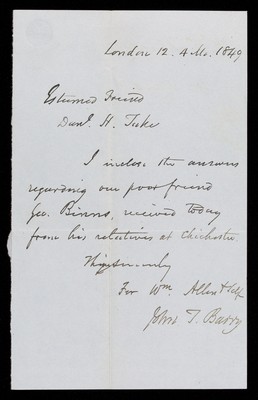 London 12. 4 Mo. 1849
Esteemed Friend
Danl. H. Tuke
I inclose the answers
regarding our poor friend
Geo. Binns, received today
from his relatives at Chichester
Thy sincerely
For Wm. Allen & Self
John T. Barry